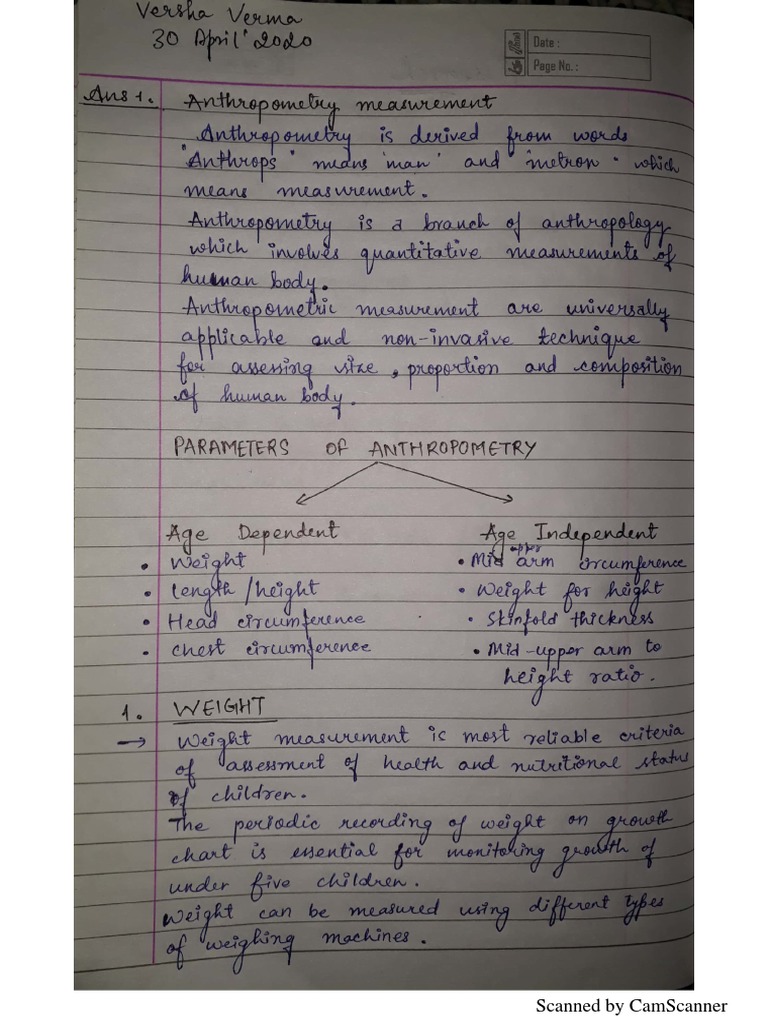 Versha Verma
30 April' 2020
Date :
Page No. :
Ans 1. Anthropometry measurement
Anthropometry is derived from words
"Anthrops" means 'man' and "metron" which
means measurement.
Anthropometry is a branch of anthropology
which involves quantitative measurements of
human body.
Anthropometric measurement are universally
applicable and non-invasive technique
for assessing size, proportion and composition
of human body.
PARAMETERS OF ANTHROPOMETRY
Age Dependent
• Weight
• Length/height
• Head circumference
• Chest circumference
Age Independent
• Mid upper arm circumference
• Weight for height
• Skinfold thickness
• Mid-upper arm to
height ratio.
1. WEIGHT
→ Weight measurement is most reliable criteria
of assessment of health and nutritional status
of children.
The periodic recording of weight on growth
chart is essential for monitoring growth of
under five children.
Weight can be measured using different types
of weighing machines.
Scanned by CamScanner